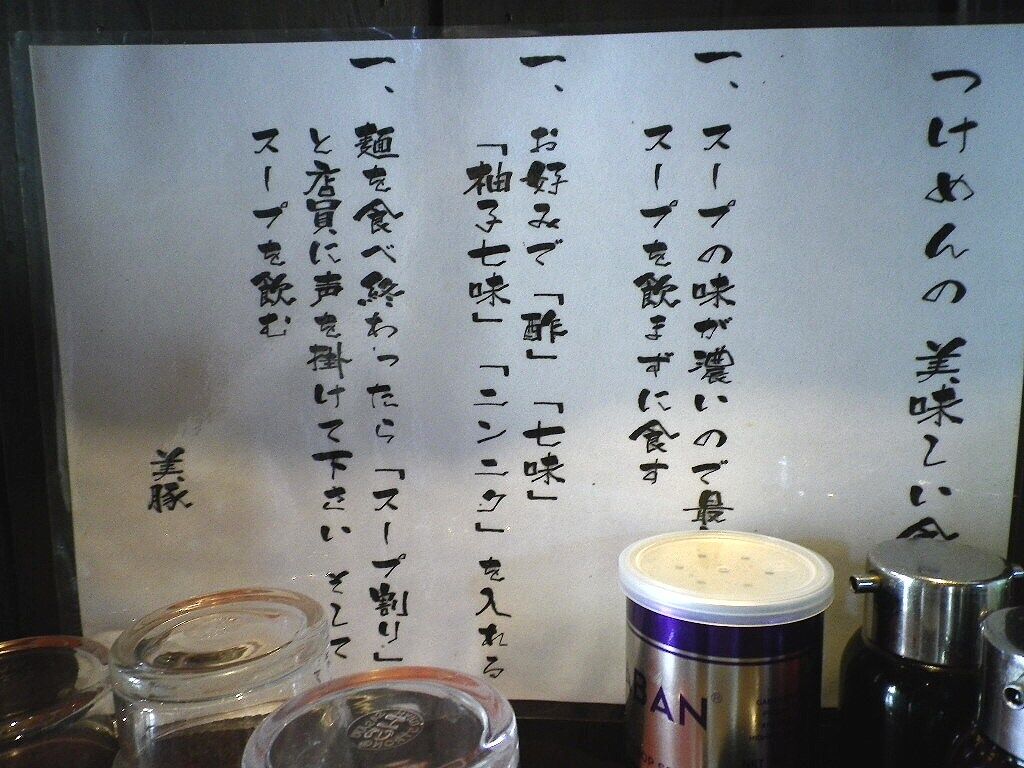 つけめんの 美味しい食
一、スープの味が濃いので最
スープを飲まずに食す
一、お好みで「酢」「七味」
「柚子七味」「ニンニク」を入れる
一、麺を食べ終わったら「スープ割り」
と店員に声を掛けて下さい そして
スープを飲む
美豚
BAN®
NET